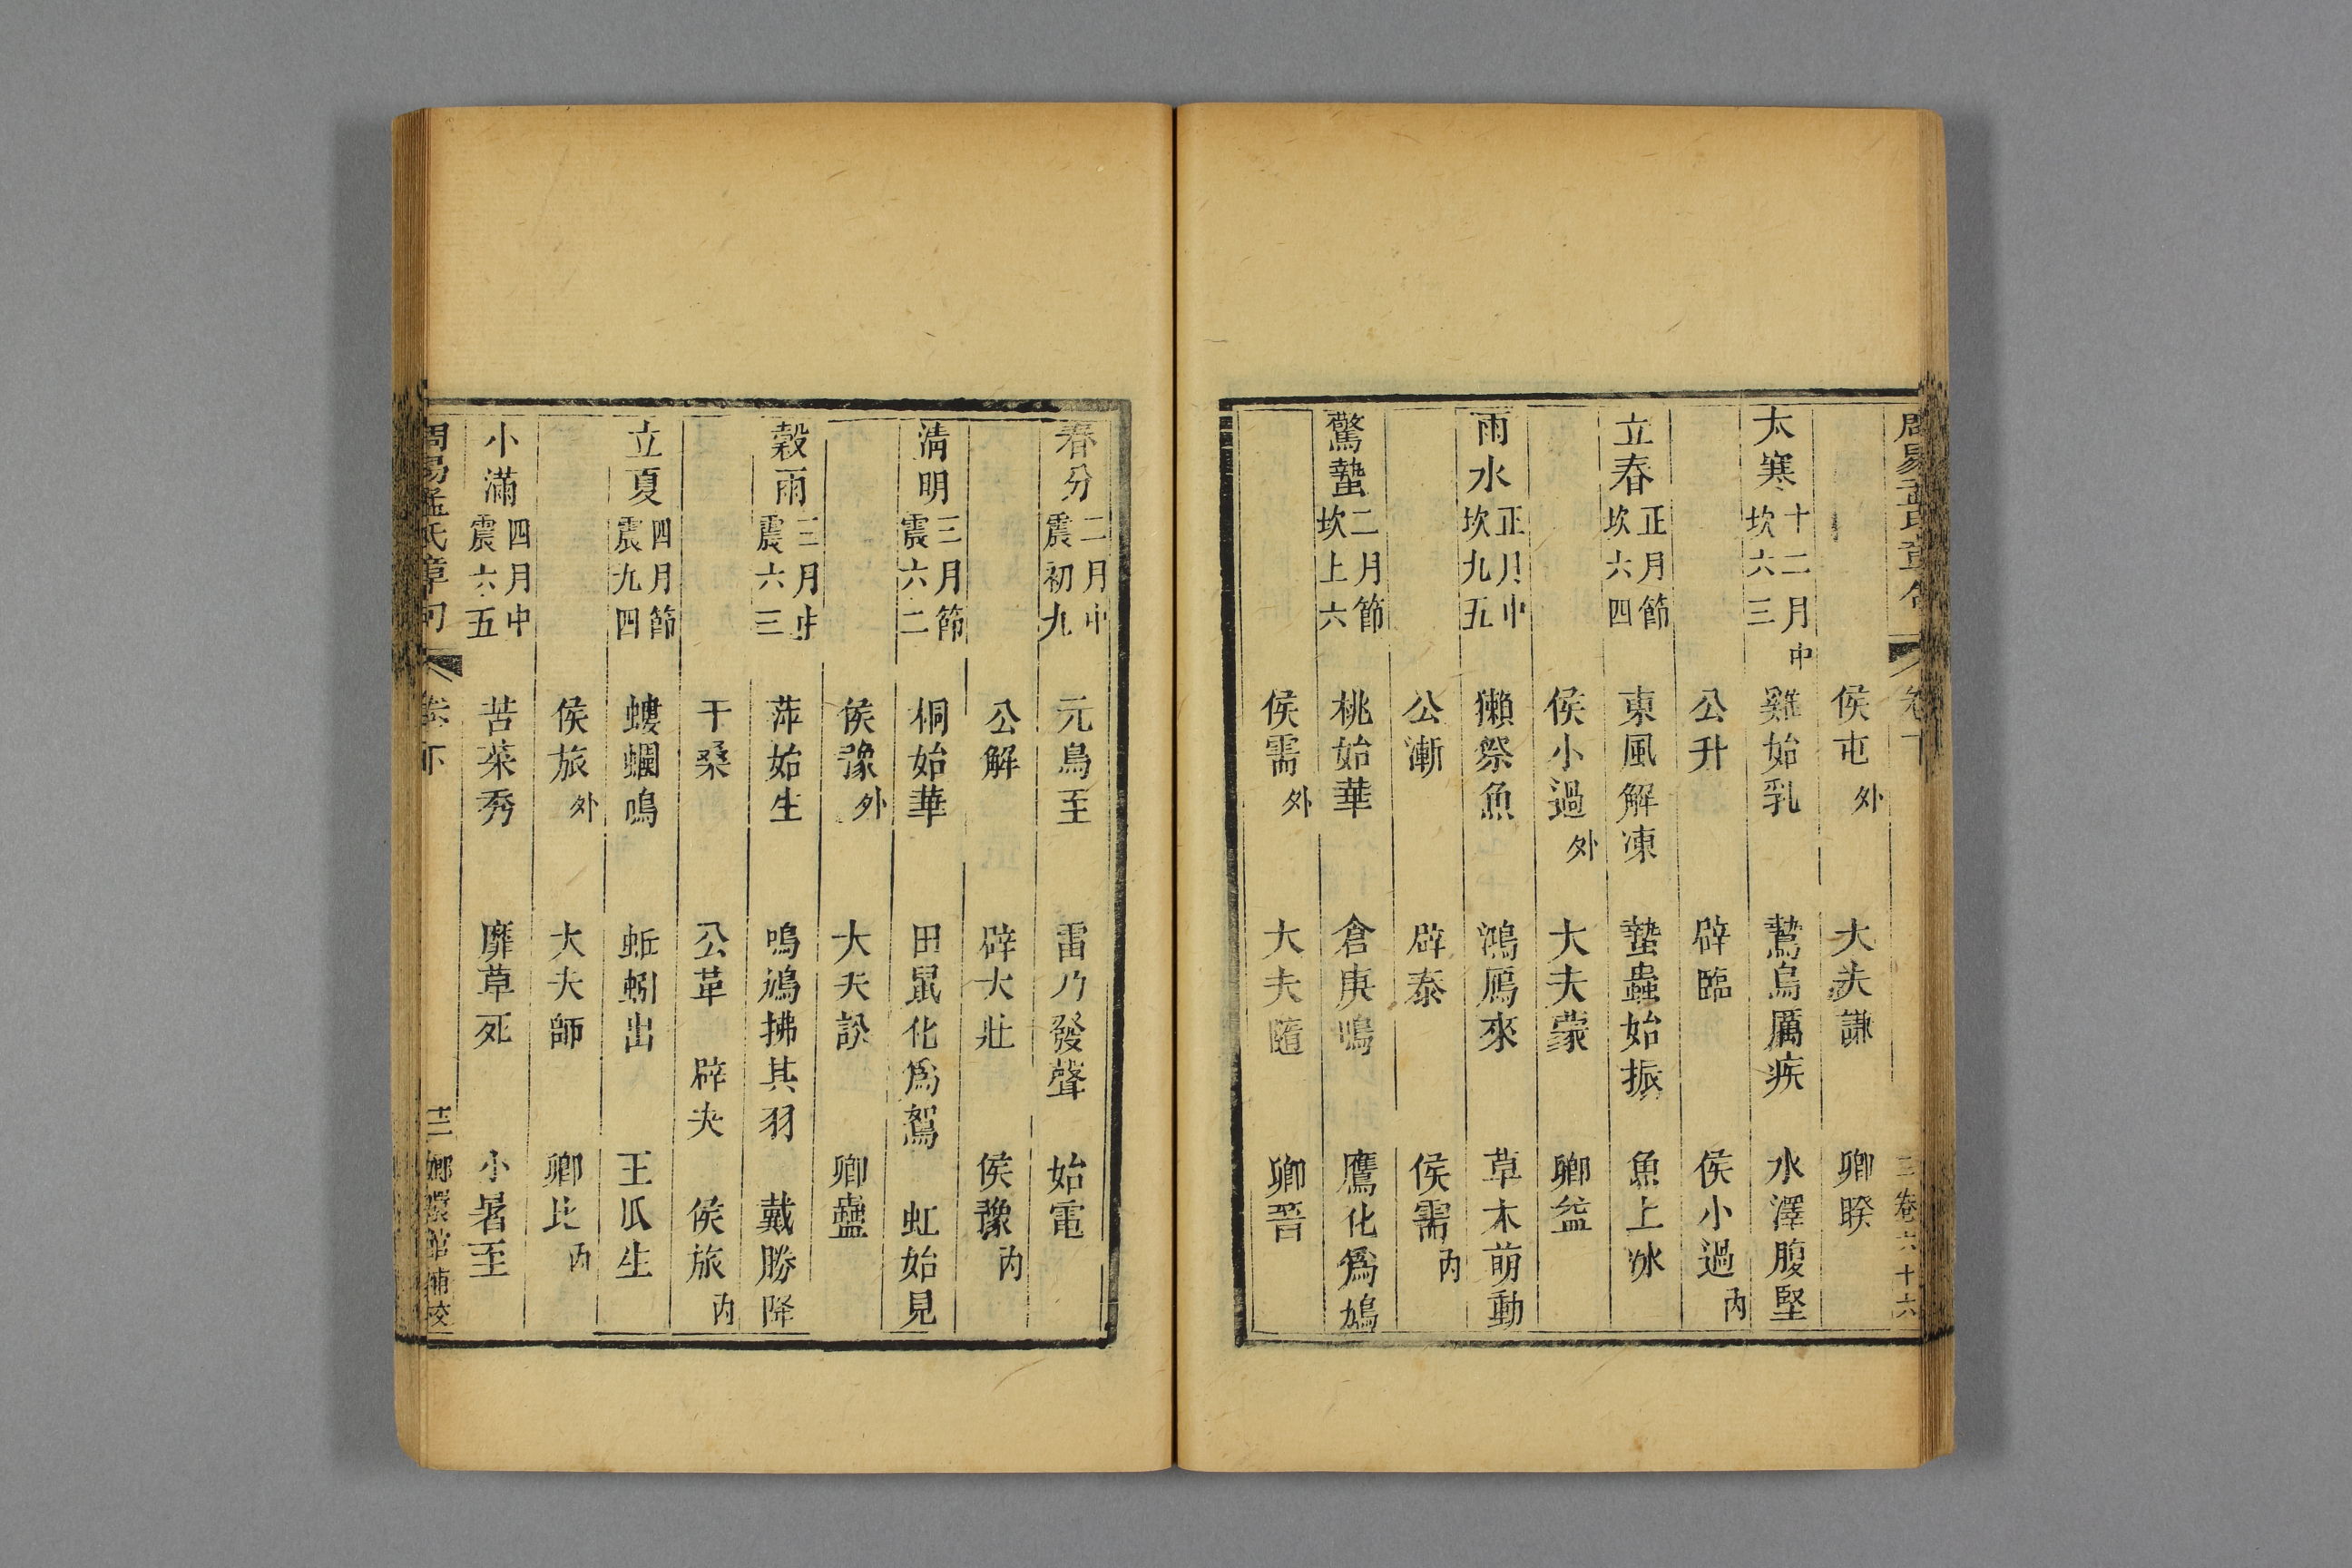 周易孟氏章句 卷下 三 卷六十六
侯屯外 大夫謙 卿睽
大寒十二月中坎六三 雞始乳 鷙鳥厲疾 水澤腹堅
公升 辟臨 侯小過內
立春正月節坎六四 東風解凍 蟄蟲始振 魚上冰
侯小過外 大夫蒙 卿益
雨水正月中坎九五 獺祭魚 鴻鴈來 草木萌動
公漸 辟泰 侯需內
驚蟄二月節坎上六 桃始華 倉庚鳴 鷹化爲鳩
侯需外 大夫隨 卿晉
春分二月中震初九 元鳥至 雷乃發聲 始電
公解 辟大壯 侯豫內
清明三月節震六二 桐始華 田鼠化爲鴽 虹始見
侯豫外 大夫訟 卿蠱
穀雨三月中震六三 萍始生 鳴鳩拂其羽 戴勝降
于桑 公革 辟夬 侯旅內
立夏四月節震九四 螻蟈鳴 蚯蚓出 王瓜生
侯旅外 大夫師 卿比內
小滿四月中震六五 苦菜秀 靡草死 小暑至
周易孟氏章句 卷下 十二 嫏嬛館補校